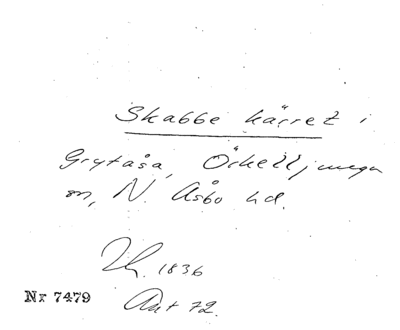 Skabbe kärret i
Grytåsa, Örkelljunga
sn, N. Åsbo hd.
1836
Nr 7479
Ant 72.